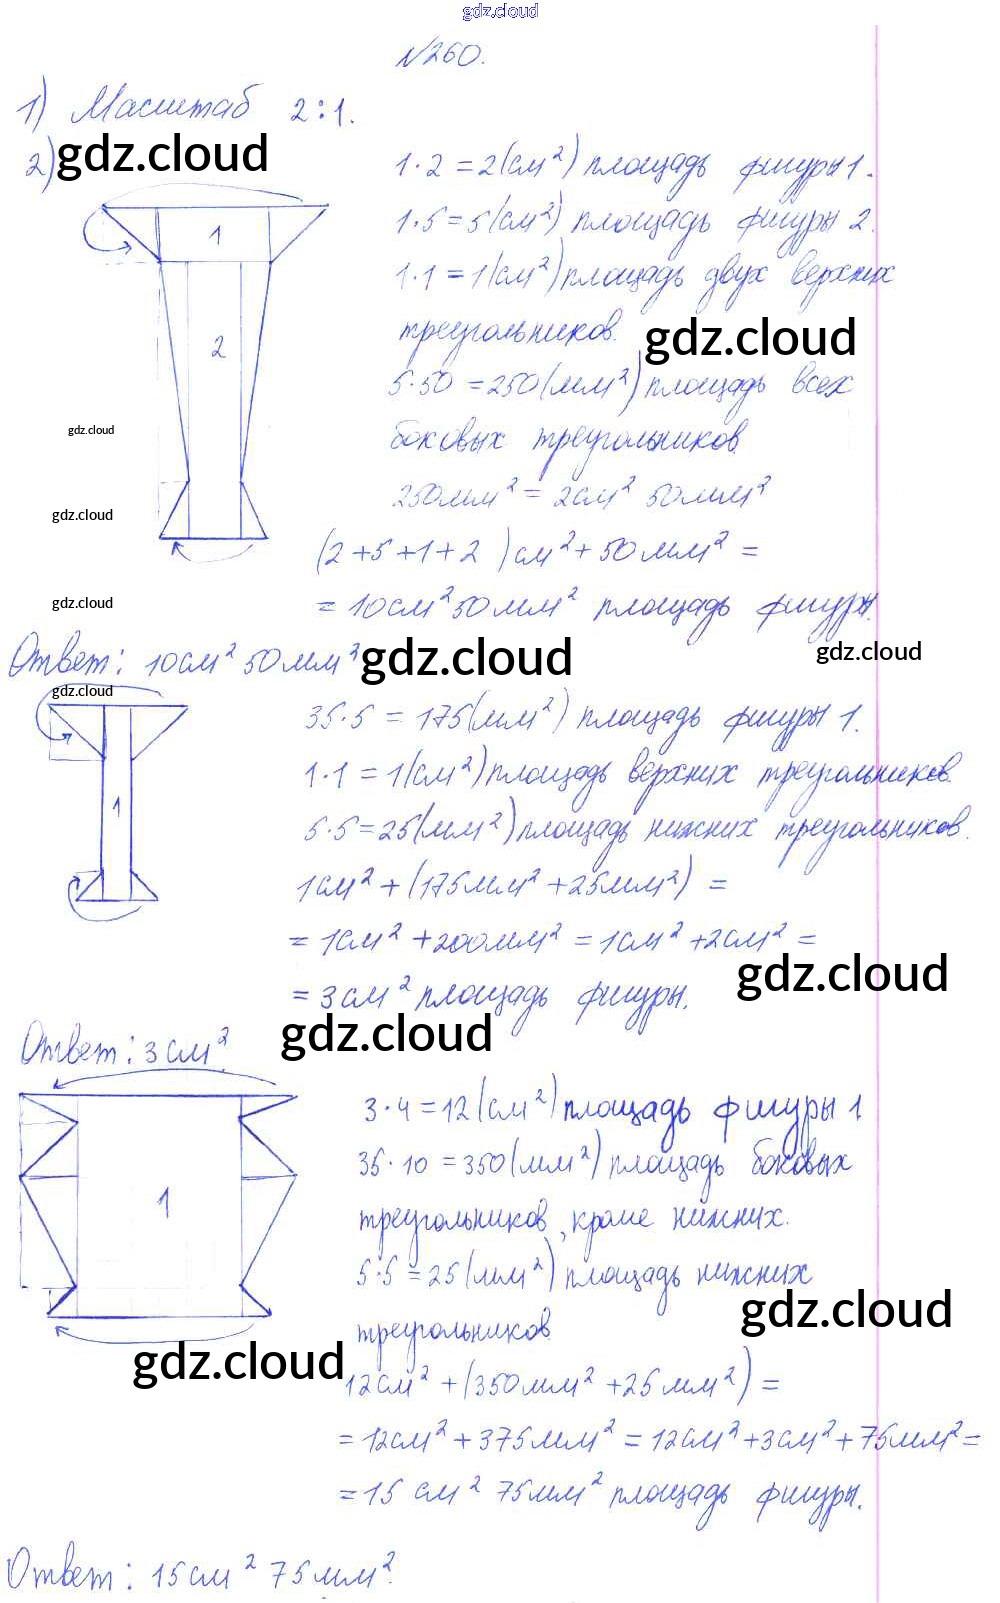 gdz.cloud
№260.
1) Масштаб 2:1.
2) gdz.cloud
1·2 = 2(см²) площадь фигуры 1.
1·5 = 5(см²) площадь фигуры 2.
1·1 = 1(см²) площадь двух верхних
треугольников.
gdz.cloud
5·50 = 250(мм²) площадь всех
боковых треугольников
250мм² = 2см² 50мм²
1
2
gdz.cloud
gdz.cloud
(2+5+1+2)см²+50мм² =
= 10см² 50мм² площадь фигуры.
gdz.cloud
Ответ: 10см² 50мм²
gdz.cloud
gdz.cloud
gdz.cloud
35·5 = 175(мм²) площадь фигуры 1.
1·1 = 1(см²) площадь верхних треугольников.
5·5=25(мм²) площадь нижних треугольников.
1
1см² + (175мм² +25мм²) =
= 1см² +200мм² = 1см² +2см² =
gdz.cloud
= 3см² площадь фигуры.
gdz.cloud
Ответ: 3см²
3·4 = 12(см²) площадь фигуры 1
35·10 = 350(мм²) площадь боковых
треугольников, кроме нижних.
1
5·5 = 25(мм²) площадь нижних
gdz.cloud
треугольников
gdz.cloud
12см² +(350мм² +25мм²) =
= 12см² + 375мм² = 12см²+3см²+75мм² =
= 15 см² 75мм² площадь фигуры.
Ответ: 15см² 75мм².